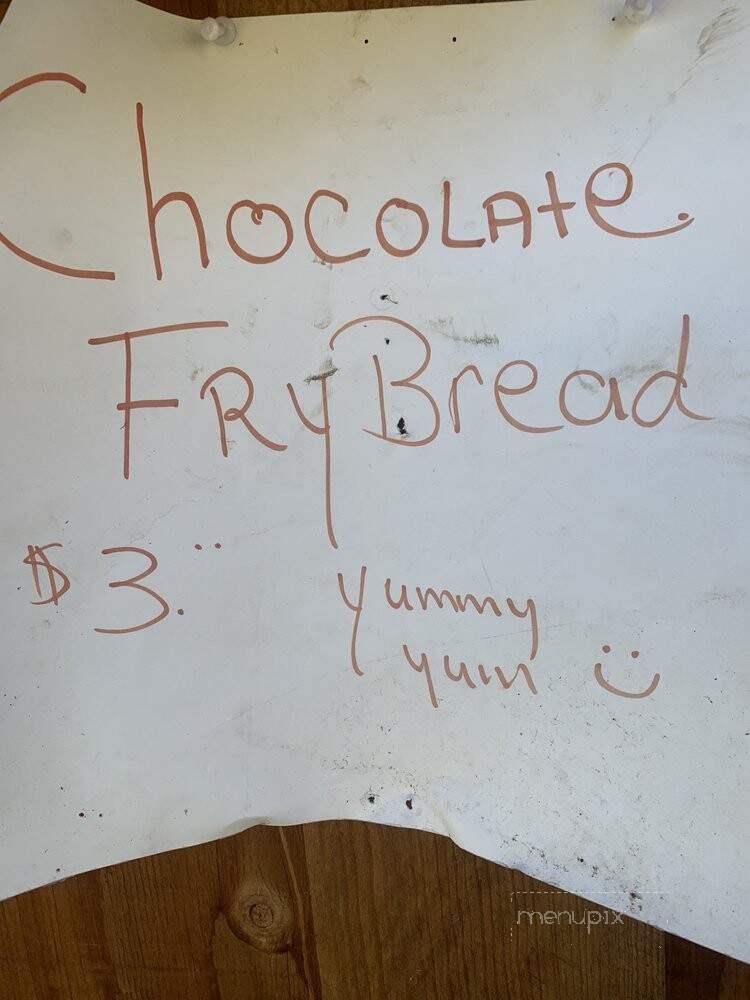 Chocolate.
Fry Bread
$3.¨ yummy
yum :)
menupix